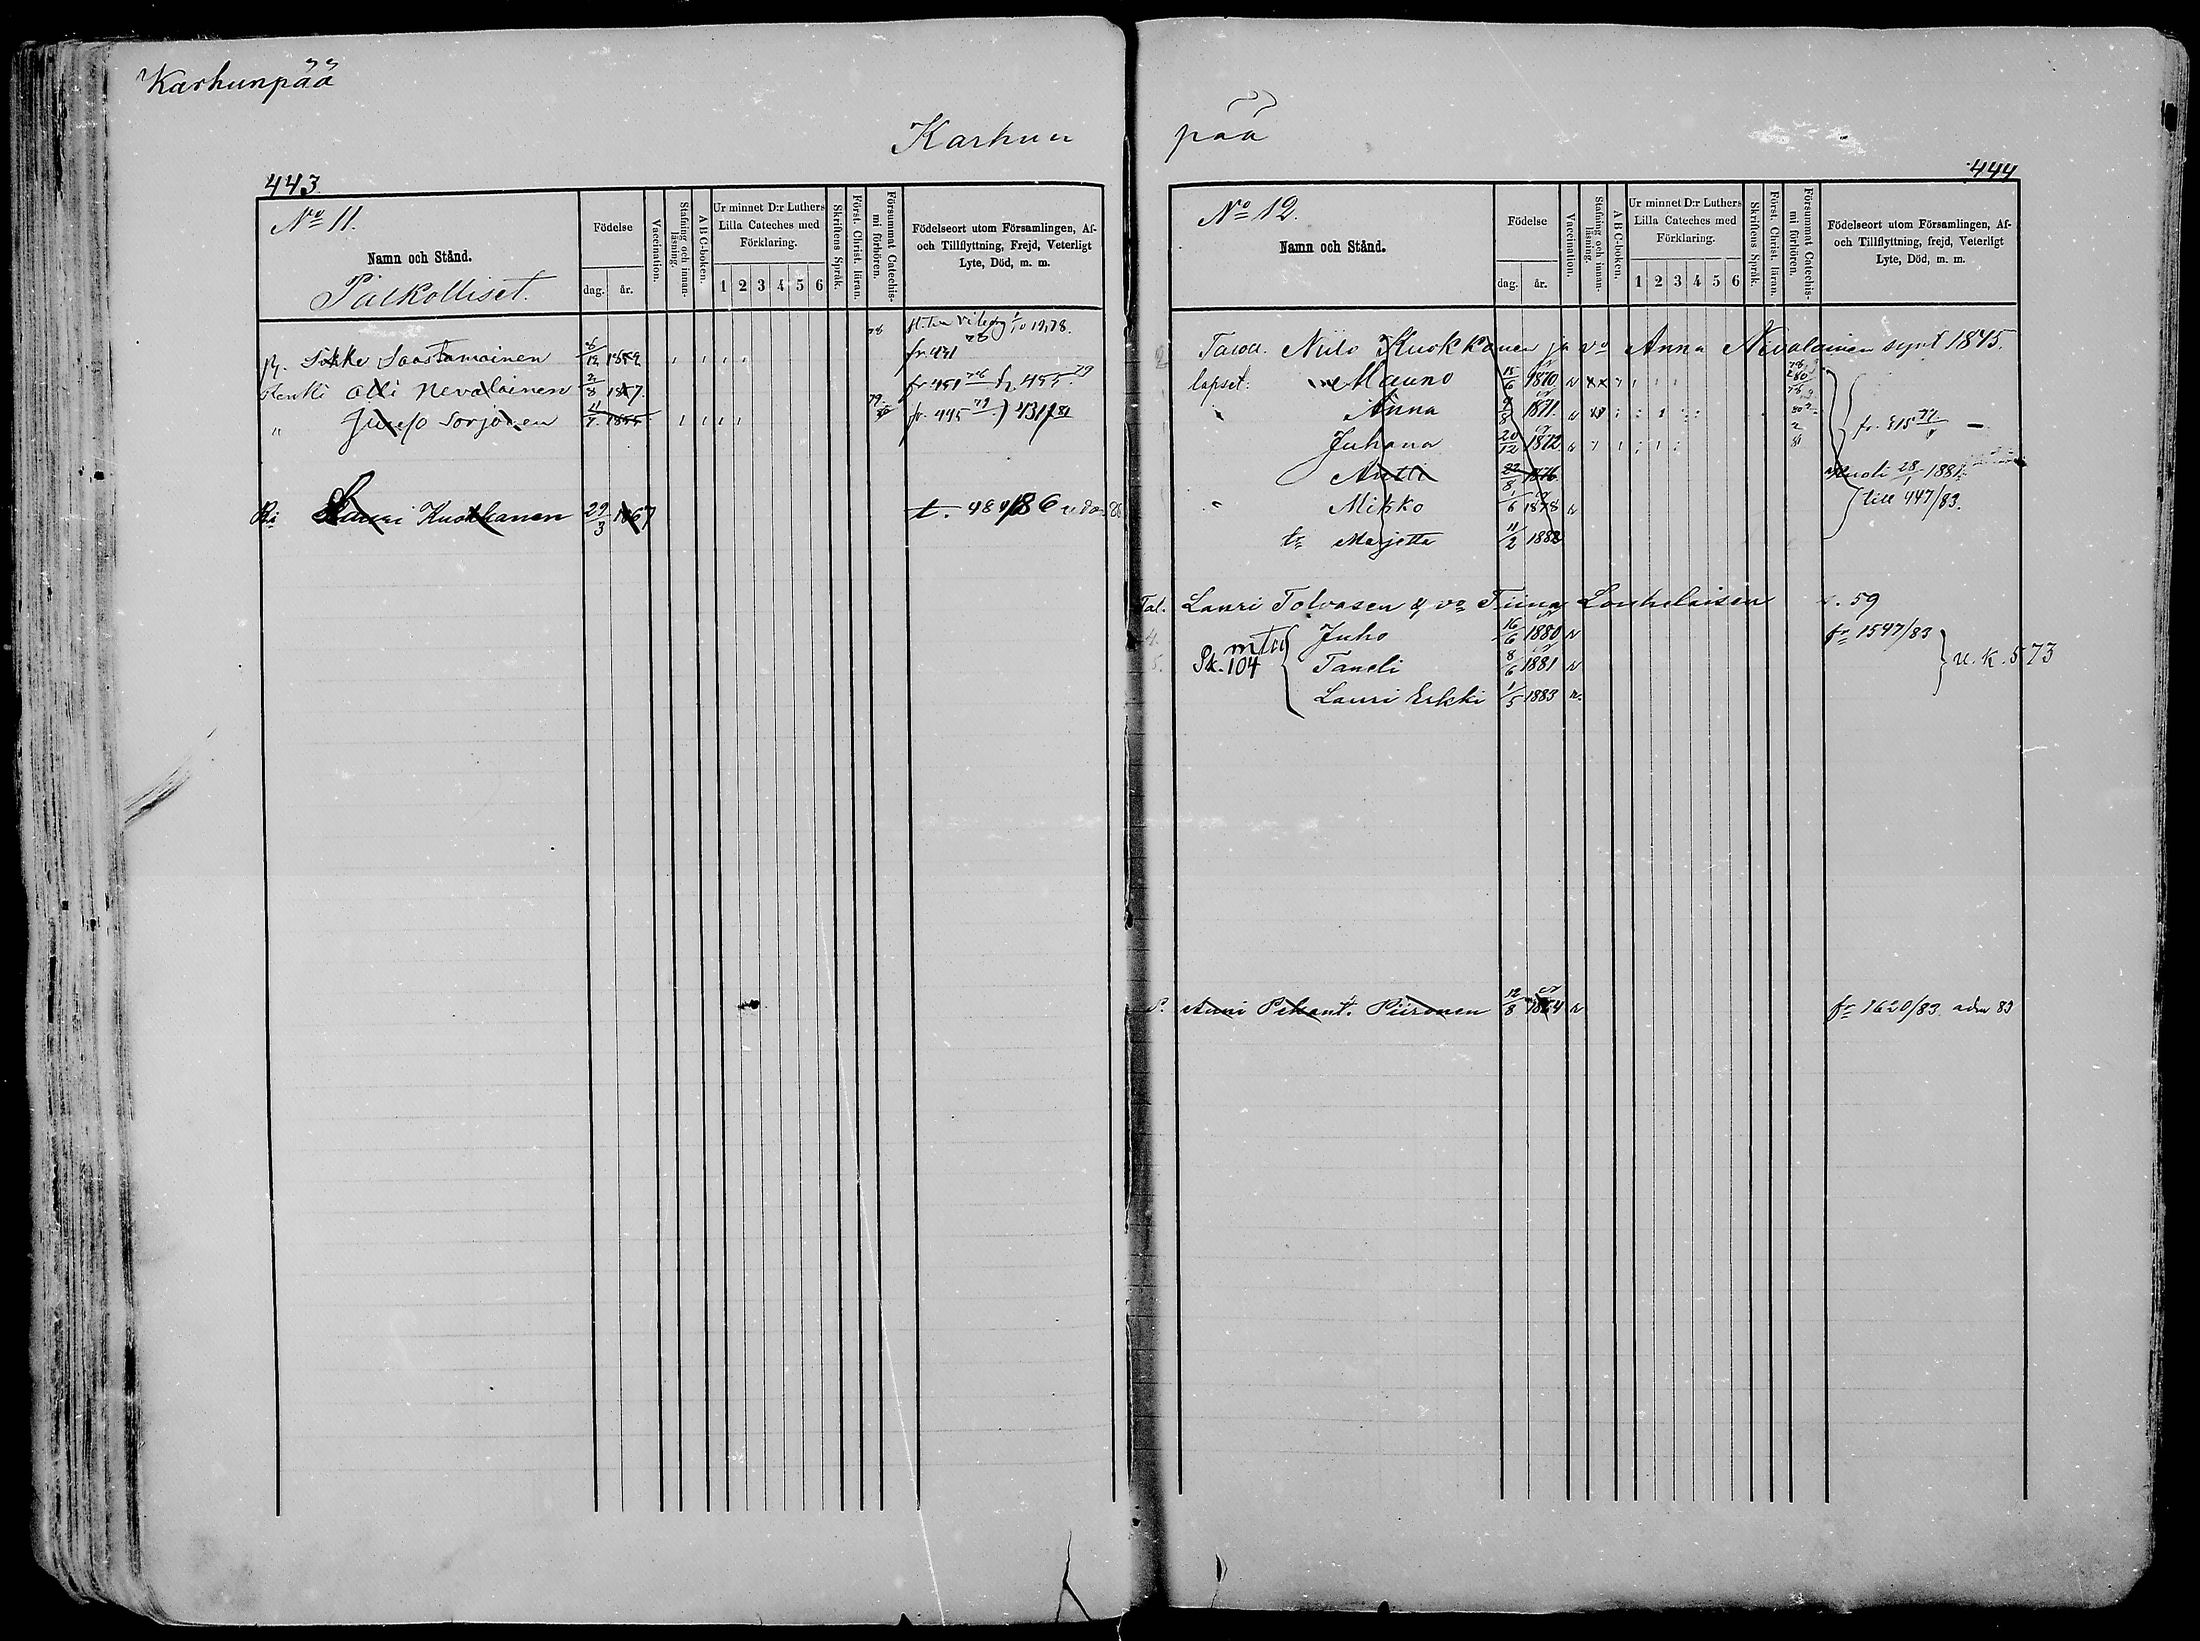 Karhunpää
Karhun pää
443.
No 11.
Namn och Stånd.
Palkolliset.
Födelse
dag. år.
Vaccination.
Stafning och innanläsning.
A B C-boken.
Ur minnet D:r Luthers Lilla Cateches med Förklaring.
1 2 3 4 5 6
Skriftens Språk.
Först. Christ. läran.
Försummat Catechismi förhören.
Födelseort utom Församlingen, Af- och Tillflyttning, Frejd, Veterligt Lyte, Död, m. m.
Saastamoinen 78 fr. 441
Olli Nevalainen 2/8 1857. fr 451 78
" Sorjonen 1855 fr. 445 79
Ri Lauri Kuokkanen 29/3 1867 t. 484/86
444
No 12.
Namn och Stånd.
Födelse
dag. år.
Vaccination.
Stafning och innanläsning.
A B C-boken.
Ur minnet D:r Luthers Lilla Cateches med Förklaring.
1 2 3 4 5 6
Skriftens Språk.
Först. Christ. läran.
Försummat Catechismi förhören.
Födelseort utom Församlingen, Af- och Tillflyttning, frejd, Veterligt Lyte, Död, m. m.
Niilo Kuokkanen ja vo Anna Nevalainen synt 1845.
lapset: Mauno 15/6 1870
Anna 9/8 1871.
Juhana 20/12 1872 fr. 815 77
Antti 22/8 1876. kuoli 28/1 1881.
Mikko 1/6 1878 till 447/83.
tr Marjetta 11/2 1882
Tal. Lauri Tolvasen & vo Tiina Louhelaisen s. 59
4. Juho 16/6 1880 fr 1547/83
5. Sk. 104 Taneli 8/6 1881 u. k. 573
Lauri Erkki 1/5 1883
P. Anni Pekant. Piironen 12/8 1864 fr 1620/83. adm 83